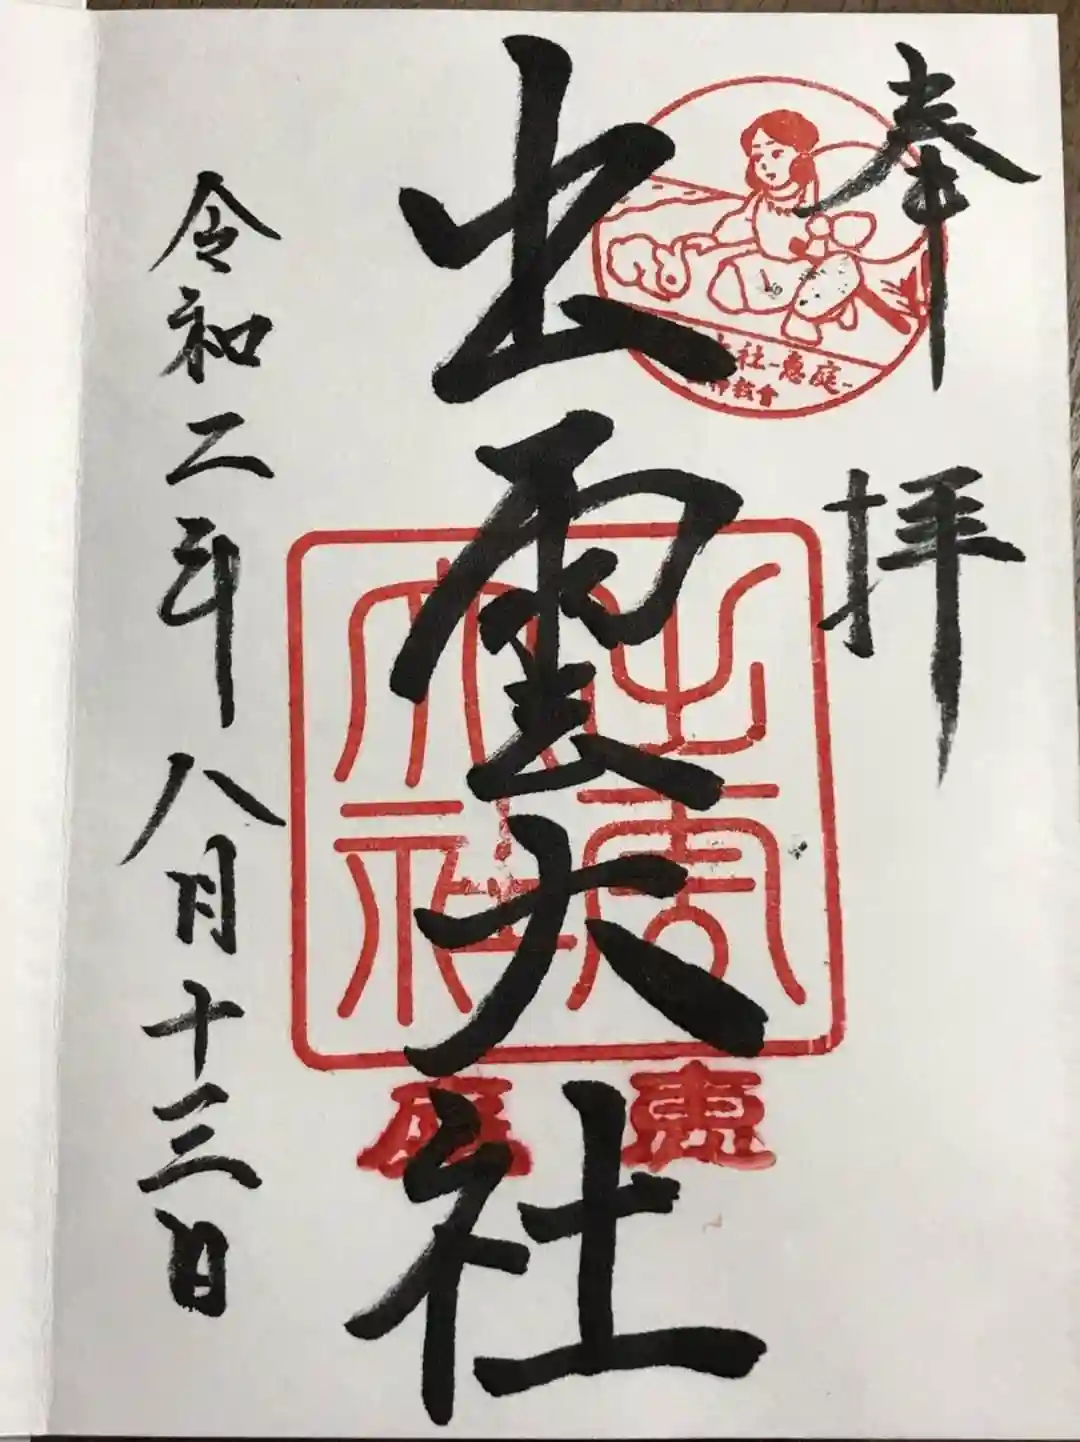 奉拝
社-恵庭-
教會
出雲大社
出雲大社
恵庭
令和二年八月十三日